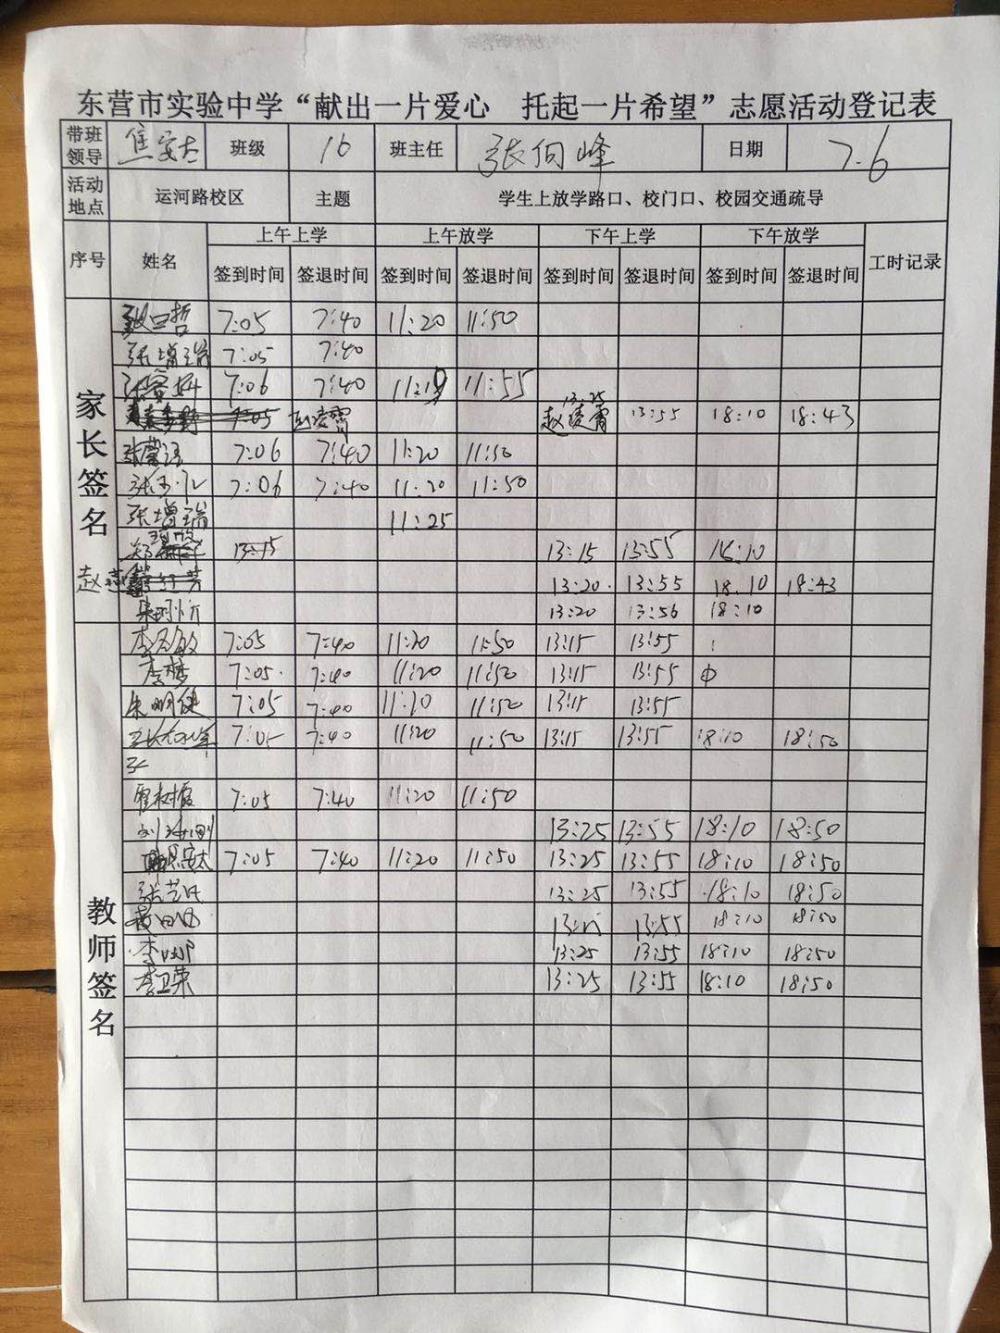 东营市实验中学“献出一片爱心 托起一片希望”志愿活动登记表
带班领导 焦安太 班级 16 班主任 张向峰 日期 7.6
活动地点 运河路校区 主题 学生上放学路口、校门口、校园交通疏导
序号 姓名 上午上学 上午放学 下午上学 下午放学 工时记录
签到时间 签退时间 签到时间 签退时间 签到时间 签退时间 签到时间 签退时间
家长签名
7:05 7:40 11:20 11:50
张增瑞 7:05 7:40
7:06 7:40 11:19 11:55
7:05 赵凌霄 赵凌霄 13:25 13:55 18:10 18:43
7:06 7:40 11:20 11:50
7:06 7:40 11:20 11:50
张增瑞 11:25
郑 13:15 13:15 13:55 16:10
赵 13:20 13:55 18:10 18:43
13:20 13:56 18:10
教师签名
7:05 7:40 11:20 11:50 13:15 13:55
李梦 7:05 7:40 11:20 11:50 13:15 13:55
朱明健 7:05 7:40 11:20 11:50 13:15 13:55
张向峰 7:05 7:40 11:20 11:50 13:15 13:55 18:10 18:50
7:05 7:40 11:20 11:50
13:25 13:55 18:10 18:50
焦安太 7:05 7:40 11:20 11:50 13:25 13:55 18:10 18:50
13:25 13:55 18:10 18:50
13:55 18:10 18:50
13:25 13:55 18:10 18:50
李卫荣 13:25 13:55 18:10 18:50